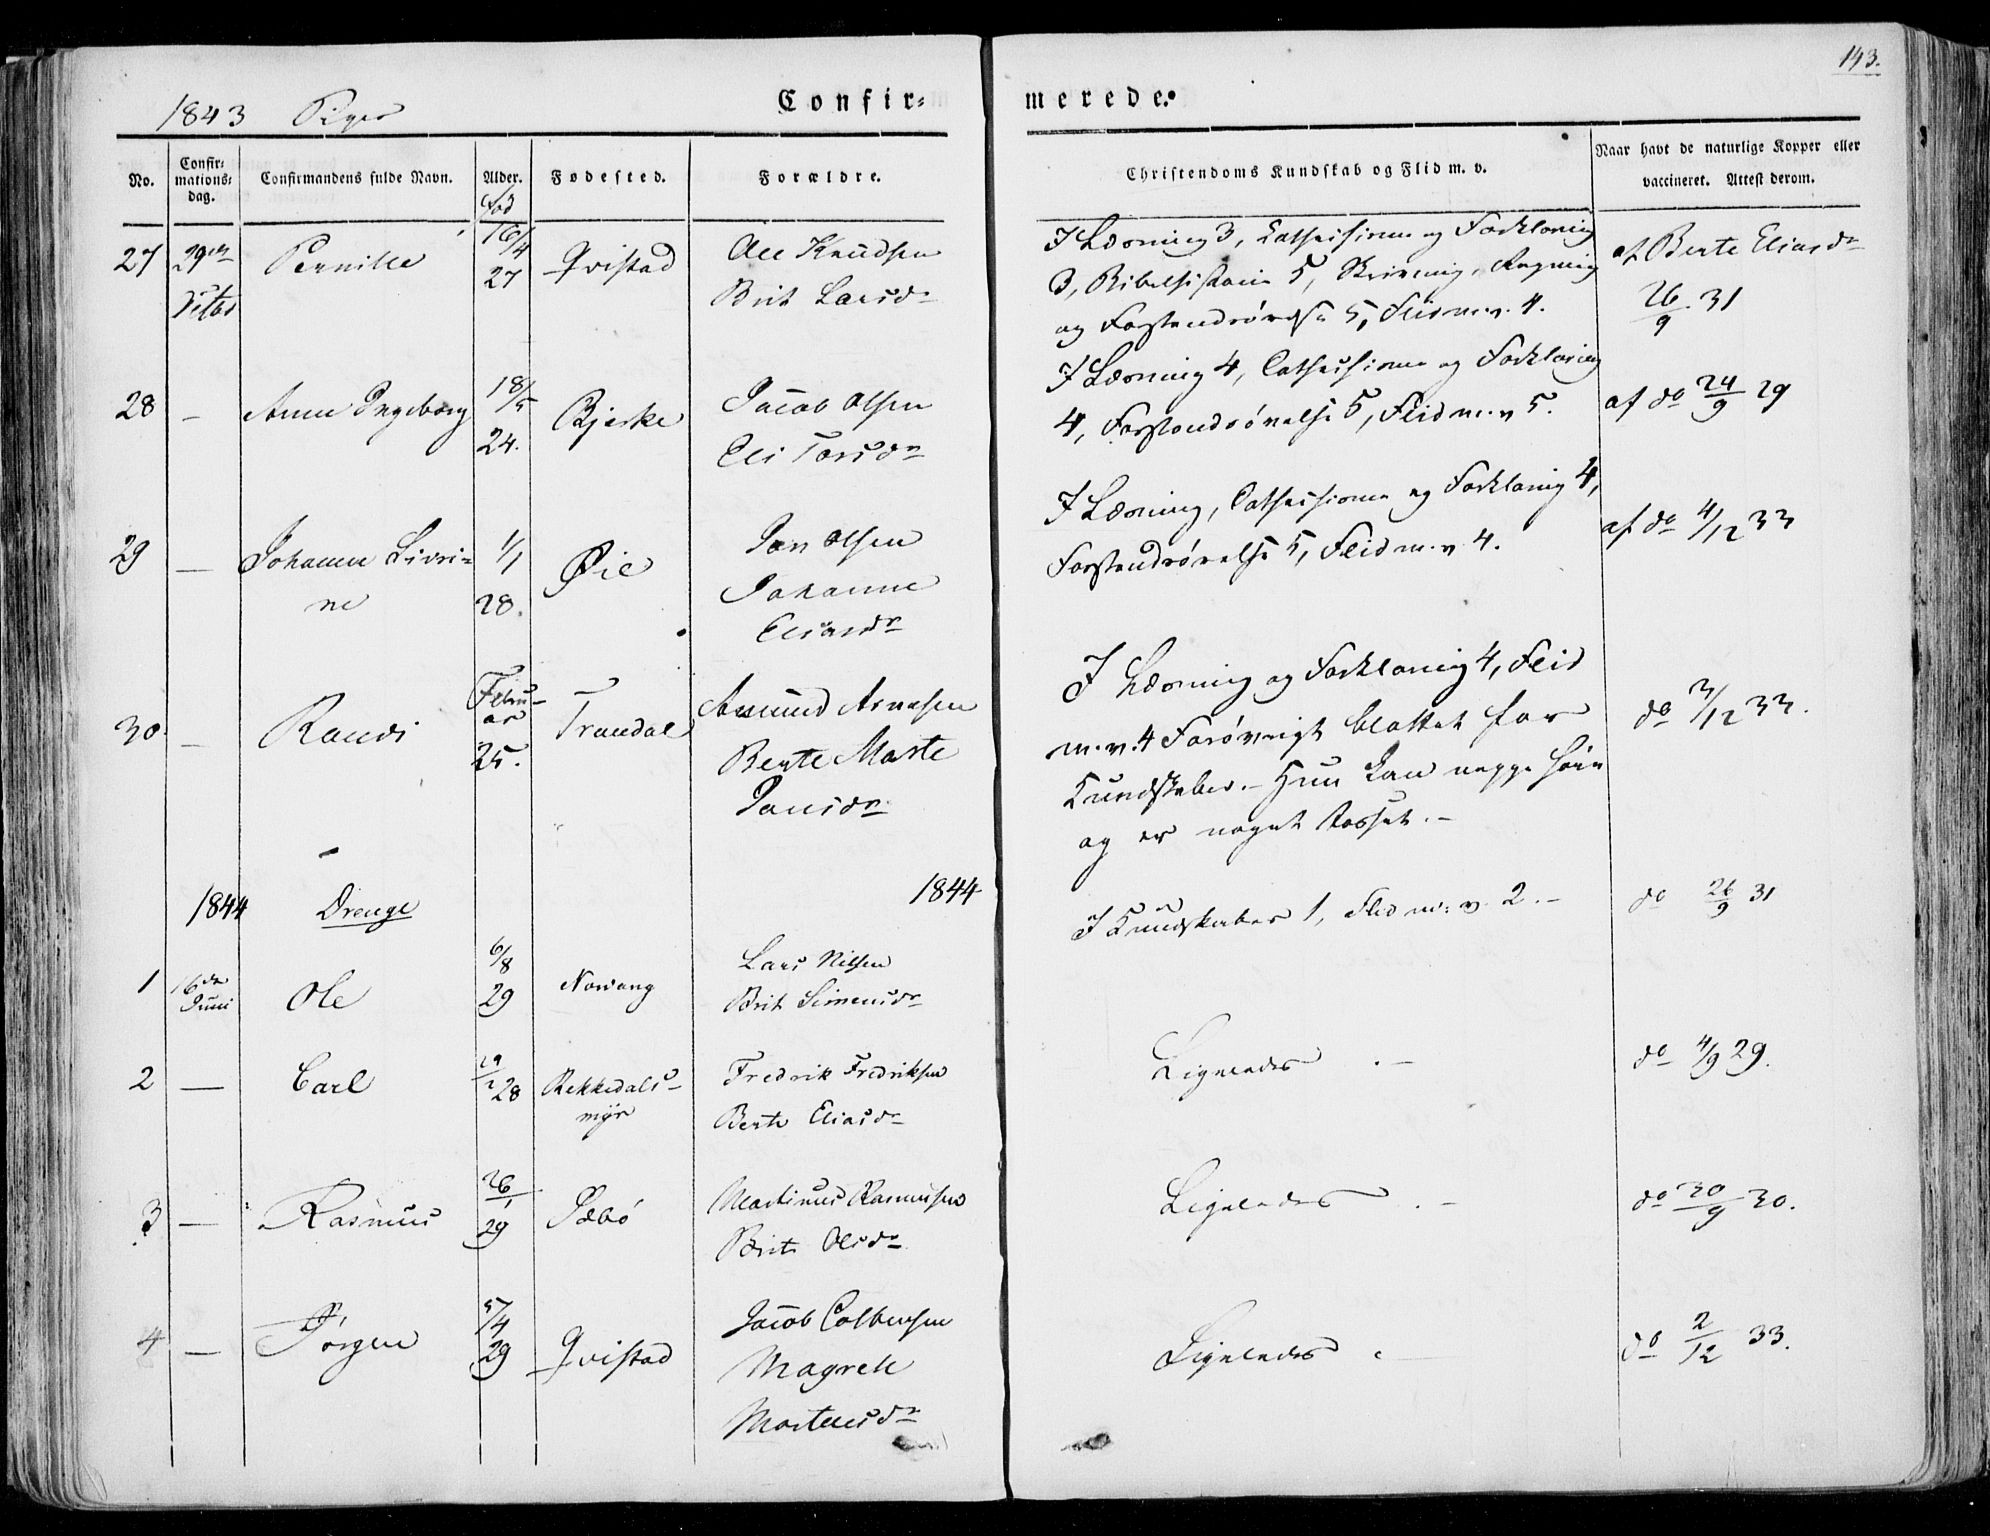 143.
1843 Piger
Confir= merede.
No.
Confir=
mations=
dag.
Confirmandens fulde Navn.
Alder.
Fødested.
Forældre.
Christendoms Kundskab og Flid m. v.
Naar havt de naturlige Kopper eller
vaccineret. Attest derom.
fød
27 29de Pernille 16/4 27 Qvistad
Ole Knudsen
Brit Larsdr
I Læsning 3, Cathechisme og Forklaring
3, Bibelhistorie 5, Skrivning, Regning
og Forstandsøvelse 5, Flid m.v. 4.
af Berte Eliasdr
26/9 31
28 — Anne Ingeborg 18/5 24. Bjerke
Jacob Olsen
Eli Larsdr
I Læsning 4, Cathechisme og Forklaring
4, Forstandsøvelse 5, Flid m.v 5.
af do 24/9 29
29 — Johanne Sivri=
ne
1/1 28. Øie
Jon Olsen
Johanne
Eliasdr
I Læsning, Cathechisme og Forklaring 4,
Forstandsøvelse 5, Flid m.v 4.
af do 4/12 33
30 — Randi
Febru=
ar
25.
Trandal
Amund Arnesen
Berte Marte
Jonsdr
I Læsning og Forklaring 4, Flid
m.v. 4 Forøvrigt blottet for
Kundskaber. – Hun kan neppe høre
og er noget tosset. –
do 3/12 33.
1844 Drenge 1844
1 16de
Juni
Ole 6/8 29 Norang
Lars Nilsen
Brit Simensdr
I Kundskaber 1, Flid m: v. 2. –
do 26/9 31
2 — Carl 28
Rekkedals=
myr
Fredrik Fredriksen
Berte Eliasdr
Ligeledes . –
do 4/9 29.
3 — Rasmus 26/1 29 Sæbø
Martinus Rasmusen
Brite Olsdr
Ligeledes . –
do 30/9 30.
4 — Jørgen 5/4 29 Qvistad
Jacob Colbensen
Magrete
Martensdr
Ligeledes . —
do 2/12 33.